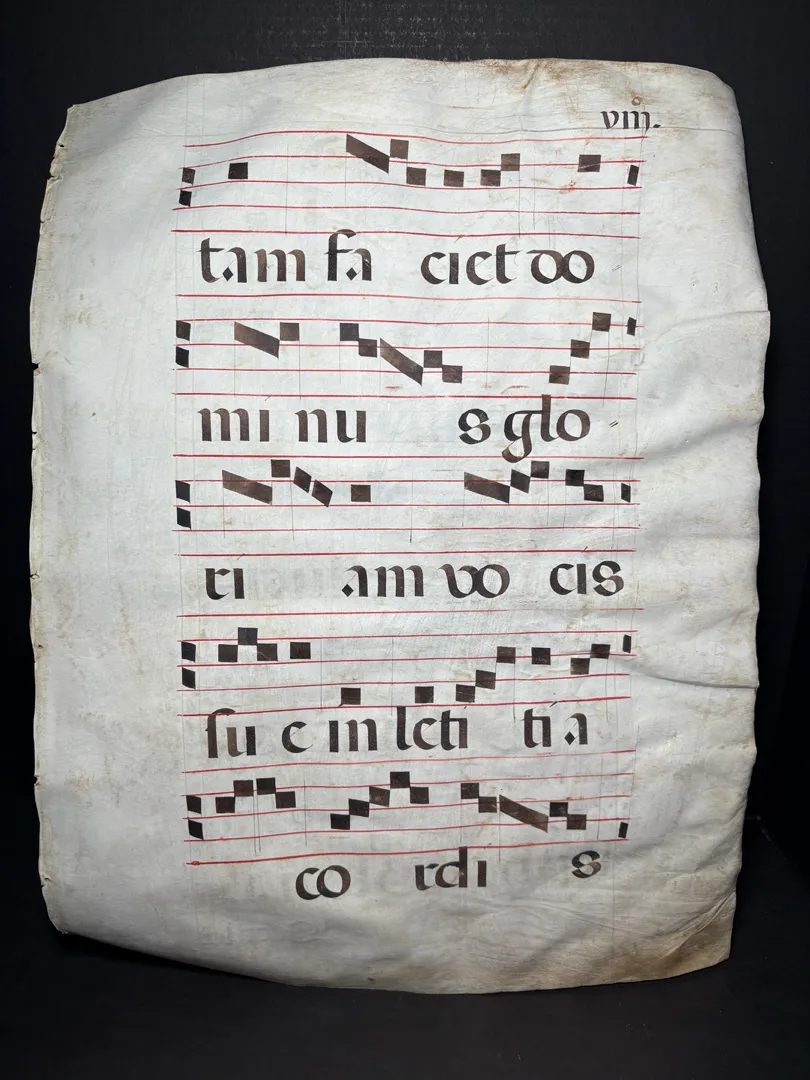 viii.
tam fa ciet do
mi nu s glo
ri am vo cis
su e in leti tia
co rdi s